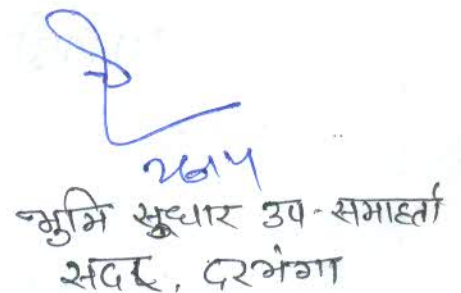 भुमि सुधार उप-समाहर्ता
सदर, दरभंगा